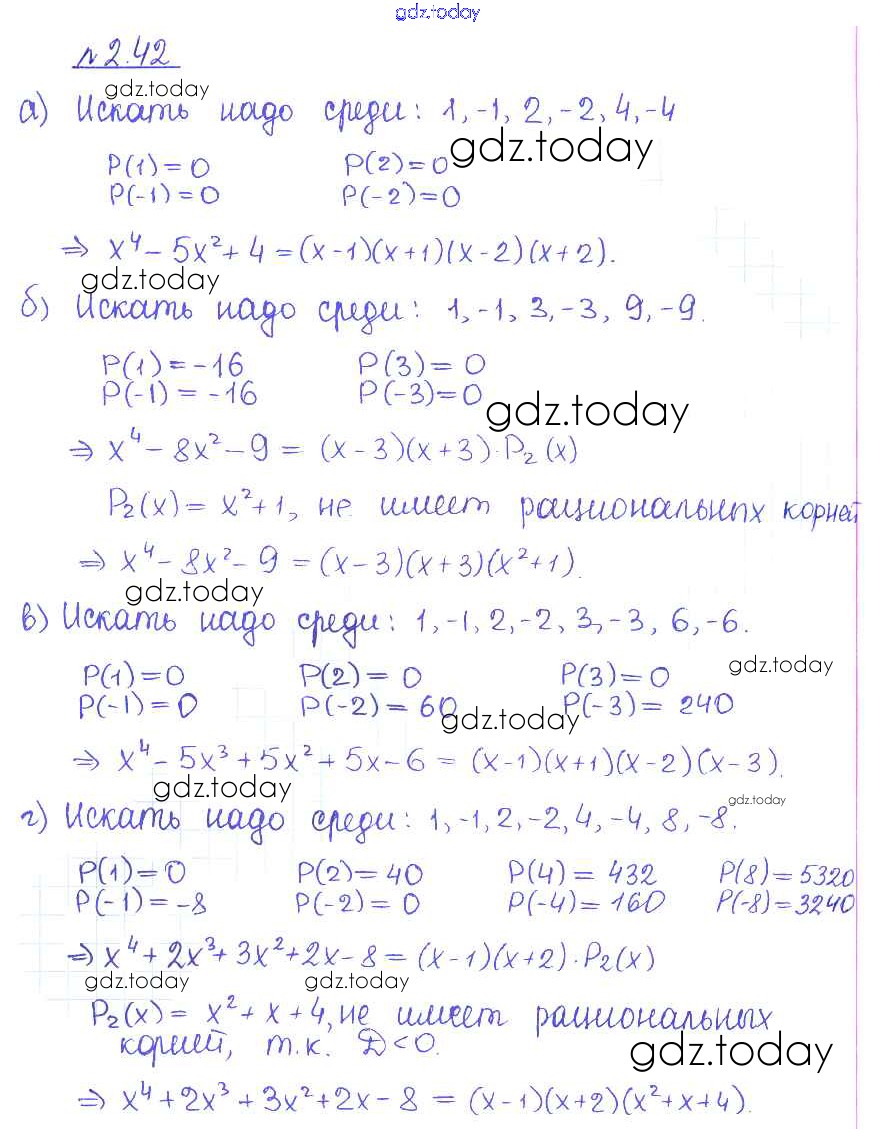 gdz.today
№2.42
gdz.today
а) Искать надо среди: 1,-1, 2,-2, 4,-4
P(1)=0 P(2)=0 gdz.today
P(-1)=0 P(-2)=0
⇒ x⁴-5x²+4=(x-1)(x+1)(x-2)(x+2).
gdz.today
б) Искать надо среди: 1,-1, 3,-3, 9,-9.
P(1)=-16 P(3)=0
P(-1)=-16 P(-3)=0
gdz.today
⇒ x⁴-8x²-9=(x-3)(x+3)·P₂(x)
P₂(x)=x²+1, не имеет рациональных корней
⇒ x⁴-8x²-9=(x-3)(x+3)(x²+1).
gdz.today
в) Искать надо среди: 1,-1, 2,-2, 3,-3, 6,-6.
P(1)=0 P(2)=0 P(3)=0 gdz.today
P(-1)=0 P(-2)=60 P(-3)=240
gdz.today
⇒ x⁴-5x³+5x²+5x-6=(x-1)(x+1)(x-2)(x-3).
gdz.today
gdz.today
г) Искать надо среди: 1,-1, 2,-2, 4,-4, 8,-8.
P(1)=0 P(2)=40 P(4)=432 P(8)=5320
P(-1)=-8 P(-2)=0 P(-4)=160 P(-8)=3240
⇒ x⁴+2x³+3x²+2x-8=(x-1)(x+2)·P₂(x)
gdz.today gdz.today
P₂(x)=x²+x+4, не имеет рациональных
корней, т.к. D<0.
gdz.today
⇒ x⁴+2x³+3x²+2x-8=(x-1)(x+2)(x²+x+4).